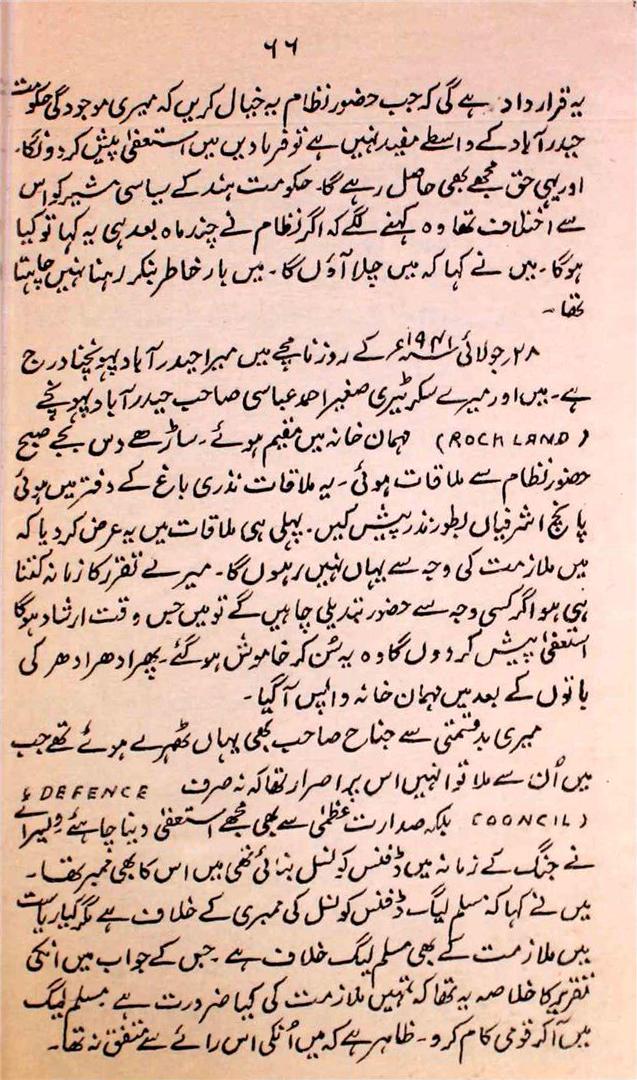 ۶۶
یہ قرارداد ہے گی کہ جب حضور نظام یہ خیال کریں کہ میری موجودگی حکومت
حیدرآباد کے واسطے مفید نہیں ہے تو فرمادیں میں استعفیٰ پیش کردونگا۔
اور یہی حق مجھے بھی حاصل رہے گا۔ حکومت ہند کے سیاسی مشیر کو اس
سے اختلاف تھا وہ کہنے لگے کہ اگر نظام نے چند ماہ بعد ہی یہ کہا تو کیا
ہوگا۔ میں نے کہا کہ میں چلا آؤں گا۔ میں بار خاطر بنکر رہنا نہیں چاہتا
تھا۔
۲۸؍ جولائی ۱۹۴۱ء کے روزنامچے میں میرا حیدرآباد پہونچنا درج
ہے۔ میں اور میرے سکریٹری صغیر احمد عباسی صاحب حیدرآباد پہونچے
(ROCHLAND) مہمان خانہ میں مقیم ہوئے۔ ساڑھے دس بجے صبح
حضور نظام سے ملاقات ہوئی۔ یہ ملاقات نذری باغ کے دفتر میں ہوئی
پانچ اشرفیاں بطور نذر پیش کیں۔ پہلی ہی ملاقات میں یہ عرض کردیا کہ
میں ملازمت کی وجہ سے یہاں نہیں رہوں گا۔ میرے تقرر کا زمانہ کتنا
ہی ہو اگر کسی وجہ سے حضور تبدیلی چاہیں گے تو میں جس وقت ارشاد ہوگا
استعفیٰ پیش کردوں گا وہ یہ سُن کر خاموش ہوگئے۔ پھر ادھر ادھر کی
باتوں کے بعد میں مہمان خانہ واپس آگیا۔
میری بدقسمتی سے جناح صاحب بھی یہاں ٹھہرے ہوئے تھے جب
میں اُن سے ملا تو انہیں اس پر اصرار تھا کہ نہ صرف DEFENCE
COUNCIL) بلکہ صدارت عظمیٰ سے بھی مجھے استعفیٰ دینا چاہئے ویسرائے
نے جنگ کے زمانہ میں ڈفنس کونسل بنائی تھی میں اس کا بھی ممبر تھا۔
میں نے کہا کہ مسلم لیگ ڈفنس کونسل کی ممبری کے خلاف ہے مگر کیا ریاست
میں ملازمت کے بھی مسلم لیگ خلاف ہے۔ جس کے جواب میں انکی
تقریر کا خلاصہ یہ تھا کہ تمہیں ملازمت کی کیا ضرورت ہے مسلم لیگ
میں آکر قومی کام کرو۔ ظاہر ہے کہ میں اُنکی اس رائے سے متفق نہ تھا۔